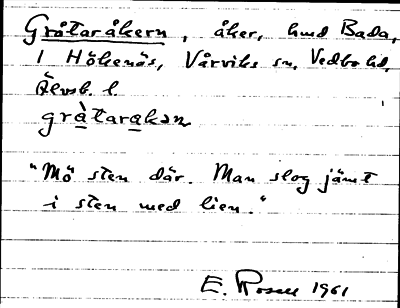 Gråtaråkern, åker, hmd Bada,
1 Hökenäs, Vårviks sn, Vedbo hd,
Älvsb. l.
gràtarakæn
"Mö sten där. Man slog jämt
i sten med lien."
E. Rosell 1961